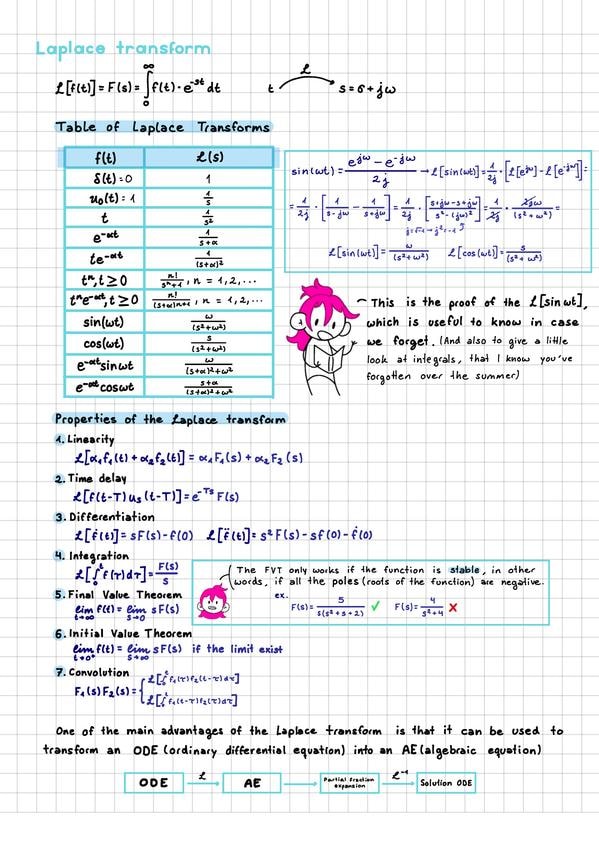 Laplace transform
ℒ[f(t)] = F(s) = ∫₀^∞ f(t)·e^(-st) dt
t ℒ s = σ + jω
Table of Laplace Transforms
f(t) ℒ(s)
δ(t)=0 1
u₀(t)=1 1/s
t 1/s²
e^(-αt) 1/(s+α)
te^(-αt) 1/(s+α)²
tⁿ, t≥0 n!/s^(n+1), n = 1,2,...
tⁿe^(-αt), t≥0 n!/(s+α)^(n+1), n = 1,2,...
sin(ωt) ω/(s²+ω²)
cos(ωt) s/(s²+ω²)
e^(-αt) sinωt ω/((s+α)²+ω²)
e^(-αt) cosωt s+α/((s+α)²+ω²)
sin(ωt) = (e^(jω) - e^(-jω))/2j → ℒ[sin(ωt)] = 1/2j · [ℒ[e^(jω)] - ℒ[e^(-jω)]] =
= 1/2j · [1/(s-jω) - 1/(s+jω)] = 1/2j · [(s+jω-s+jω)/(s²-(jω)²)] = 1/2j · 2jω/(s²+ω²) =
j=√-1 → j²=-1
ℒ[sin(ωt)] = ω/(s²+ω²) ℒ[cos(ωt)] = s/(s²+ω²)
This is the proof of the ℒ[sinωt],
which is useful to know in case
we forget. (And also to give a little
look at integrals, that I know you've
forgotten over the summer)
Properties of the Laplace transform
1. Linearity
ℒ[α₁f₁(t) + α₂f₂(t)] = α₁F₁(s) + α₂F₂(s)
2. Time delay
ℒ[f(t-T) uₛ(t-T)] = e^(-Ts) F(s)
3. Differentiation
ℒ[ḟ(t)] = sF(s) - f(0) ℒ[f̈(t)] = s²F(s) - sf(0) - ḟ(0)
4. Integration
ℒ[∫₀^t f(τ)dτ] = F(s)/s
5. Final Value Theorem
lim t→∞ f(t) = lim s→0 sF(s)
The FVT only works if the function is stable, in other
words, if all the poles (roots of the function) are negative.
ex.
F(s) = 5/(s(s²+s+2)) ✓ F(s) = 4/(s²+4) ✗
6. Initial Value Theorem
lim t→0⁺ f(t) = lim s→∞ sF(s) if the limit exist
7. Convolution
F₁(s)F₂(s) = { ℒ[∫₀^t f₁(τ)f₂(t-τ)dτ]
ℒ[∫₀^t f₁(t-τ)f₂(τ)dτ]
One of the main advantages of the Laplace transform is that it can be used to
transform an ODE (ordinary differential equation) into an AE (algebraic equation)
ODE ℒ AE Partial fraction expansion ℒ⁻¹ Solution ODE